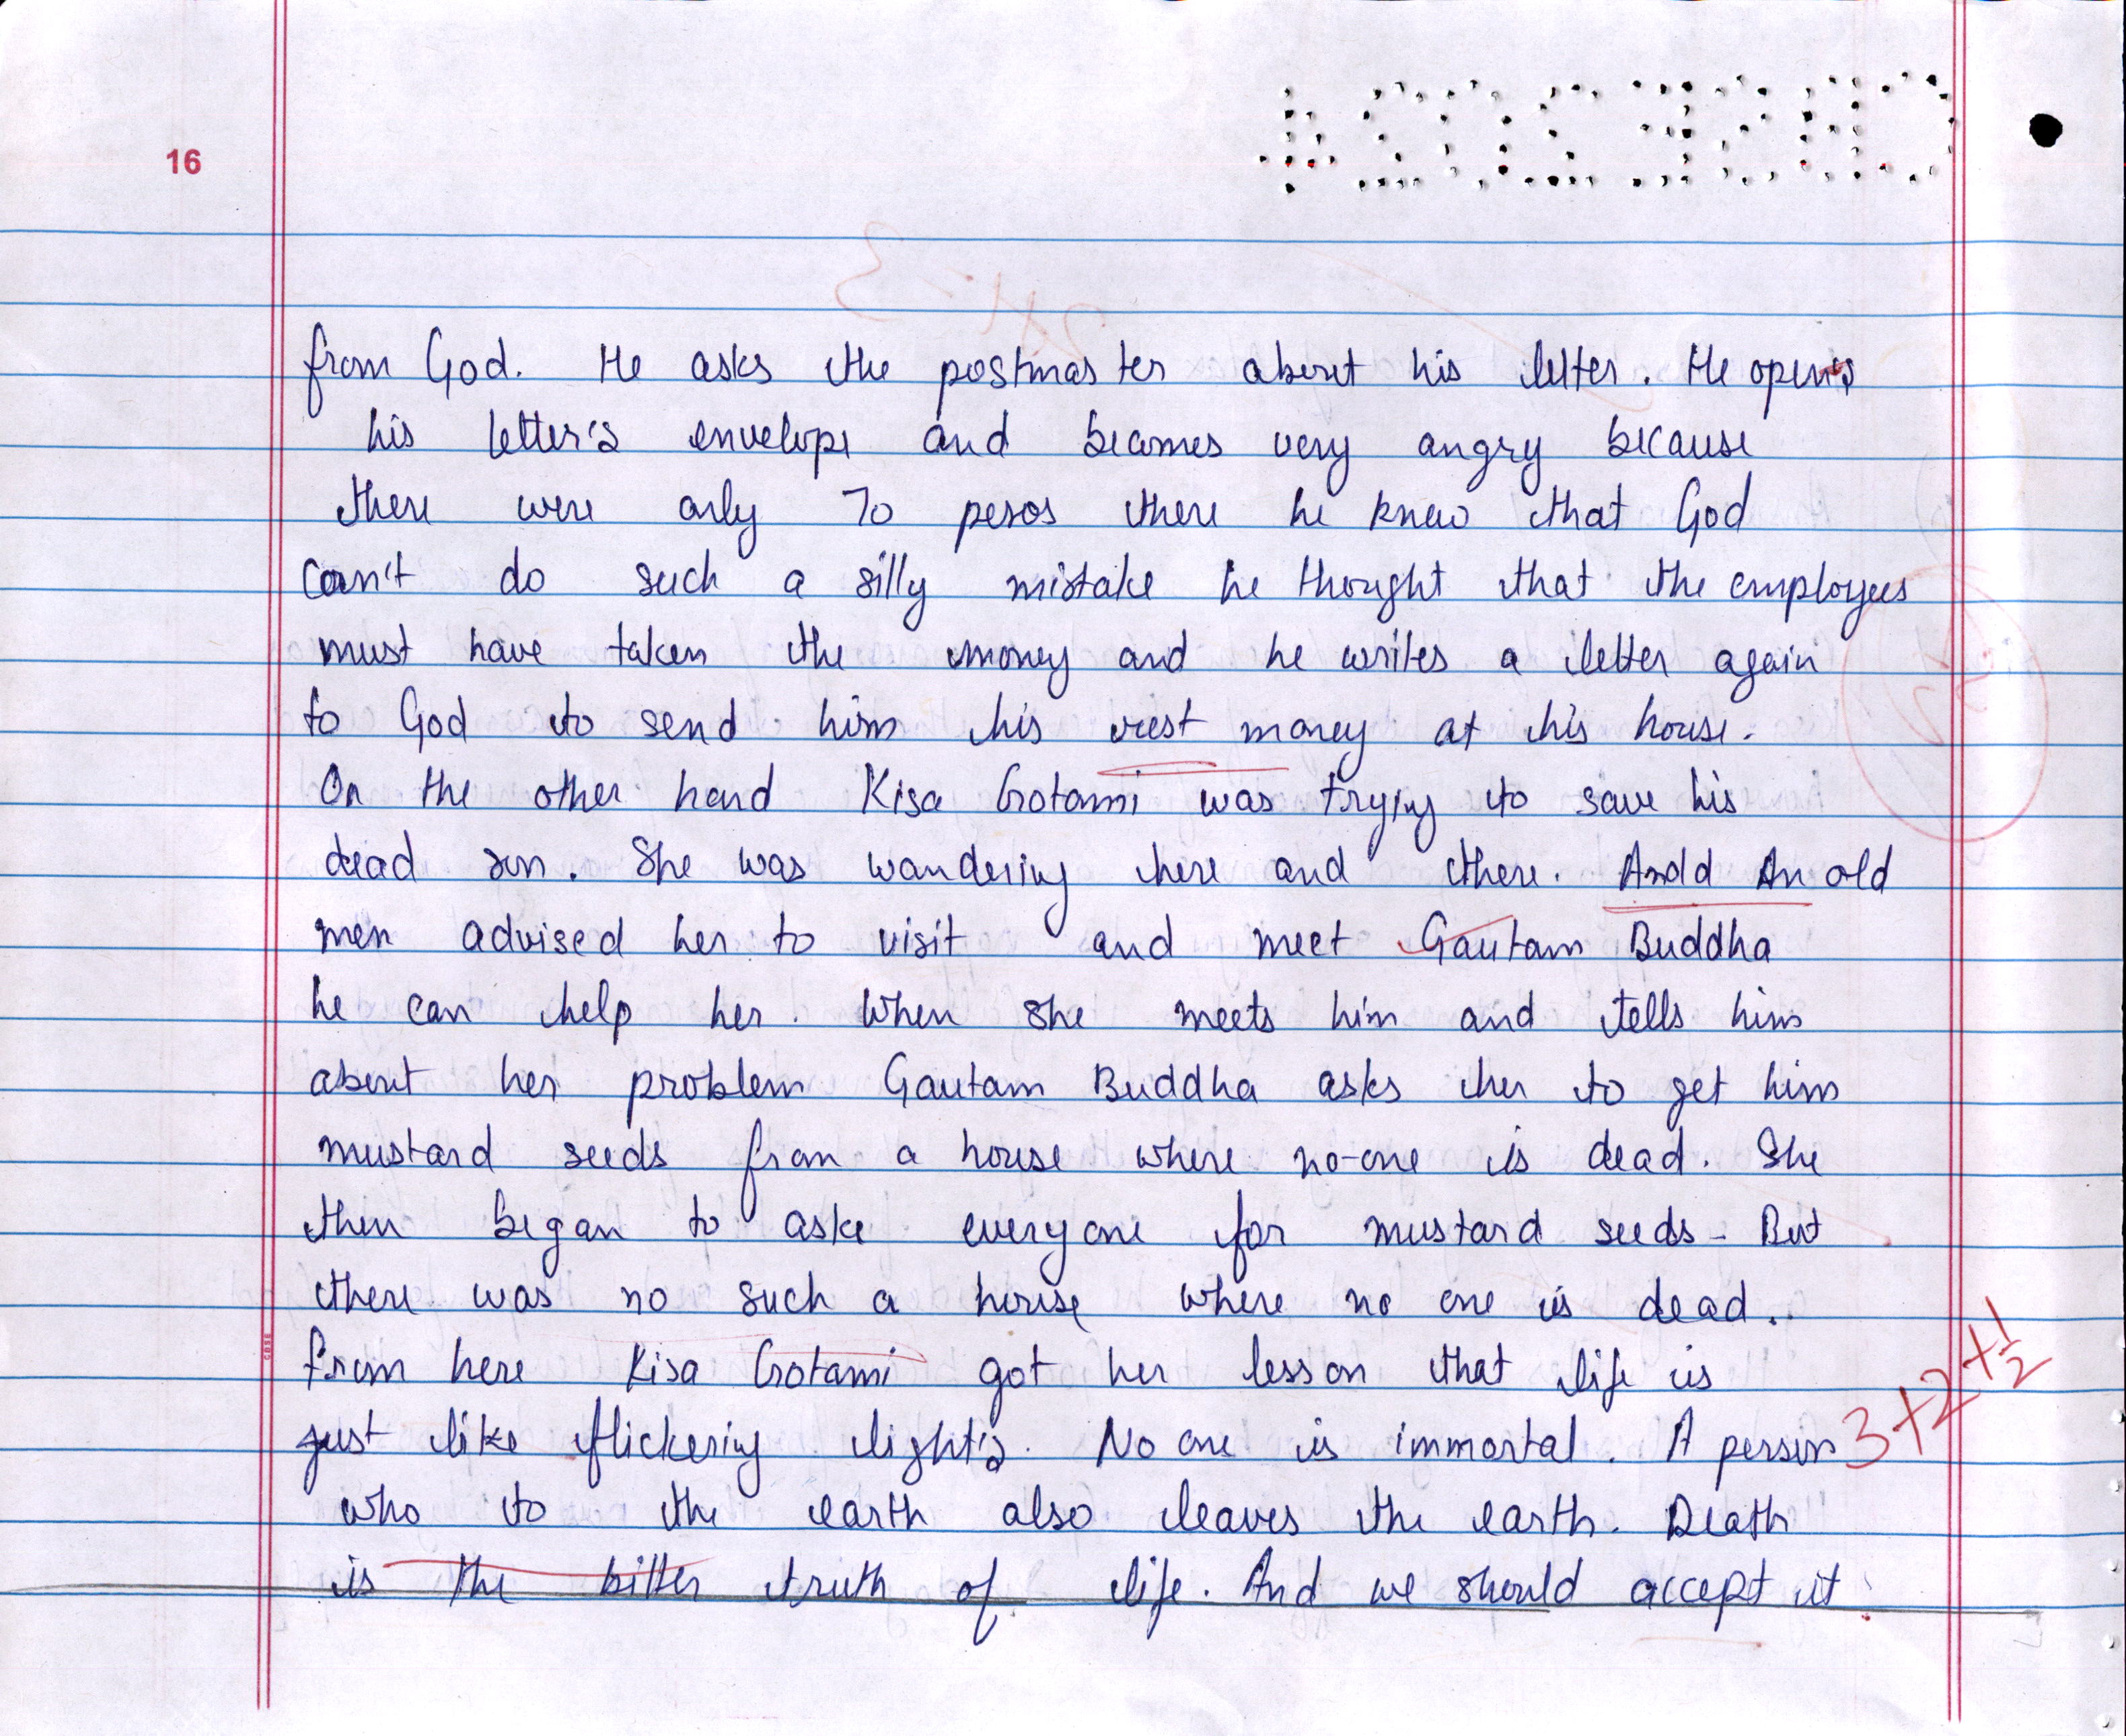 16
from God. He asks the postmaster about his letter. He opens
his letter's envelope and becomes very angry because
there were only 70 pesos there he knew that God
can't do such a silly mistake he thought that the employees
must have taken the money and he writes a letter again
to God to send him his rest money at his house.
On the other hand Kisa Gotami was trying to save his
dead son. She was wandering here and there. Andd An old
men advised her to visit and meet Gautam Buddha
he can help her. When she meets him and tells him
about her problem Gautam Buddha asks her to get him
mustard seeds from a house where no-one is dead. She
then began to aske everyone for mustard seeds - But
there was no such a house where no one is dead..
from here Kisa Gotami got her lesson that life is
just like flickering light's. No one is immortal. A person
3+2+½
who to the earth also leaves the earth. Death
is the bitter truth of life. And we should accept it.
CBSE